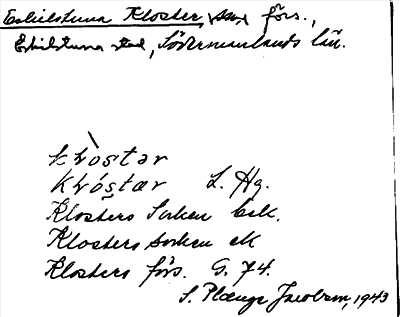 Eskilstuna Kloster, förs.,
Eskilstuna stad, Södermanlands län.
klòstər
klóstær L. Hg.
Klosters Socken
Klosters socken
Klosters förs. G. 74.
S. Plænge Jacobson, 1943